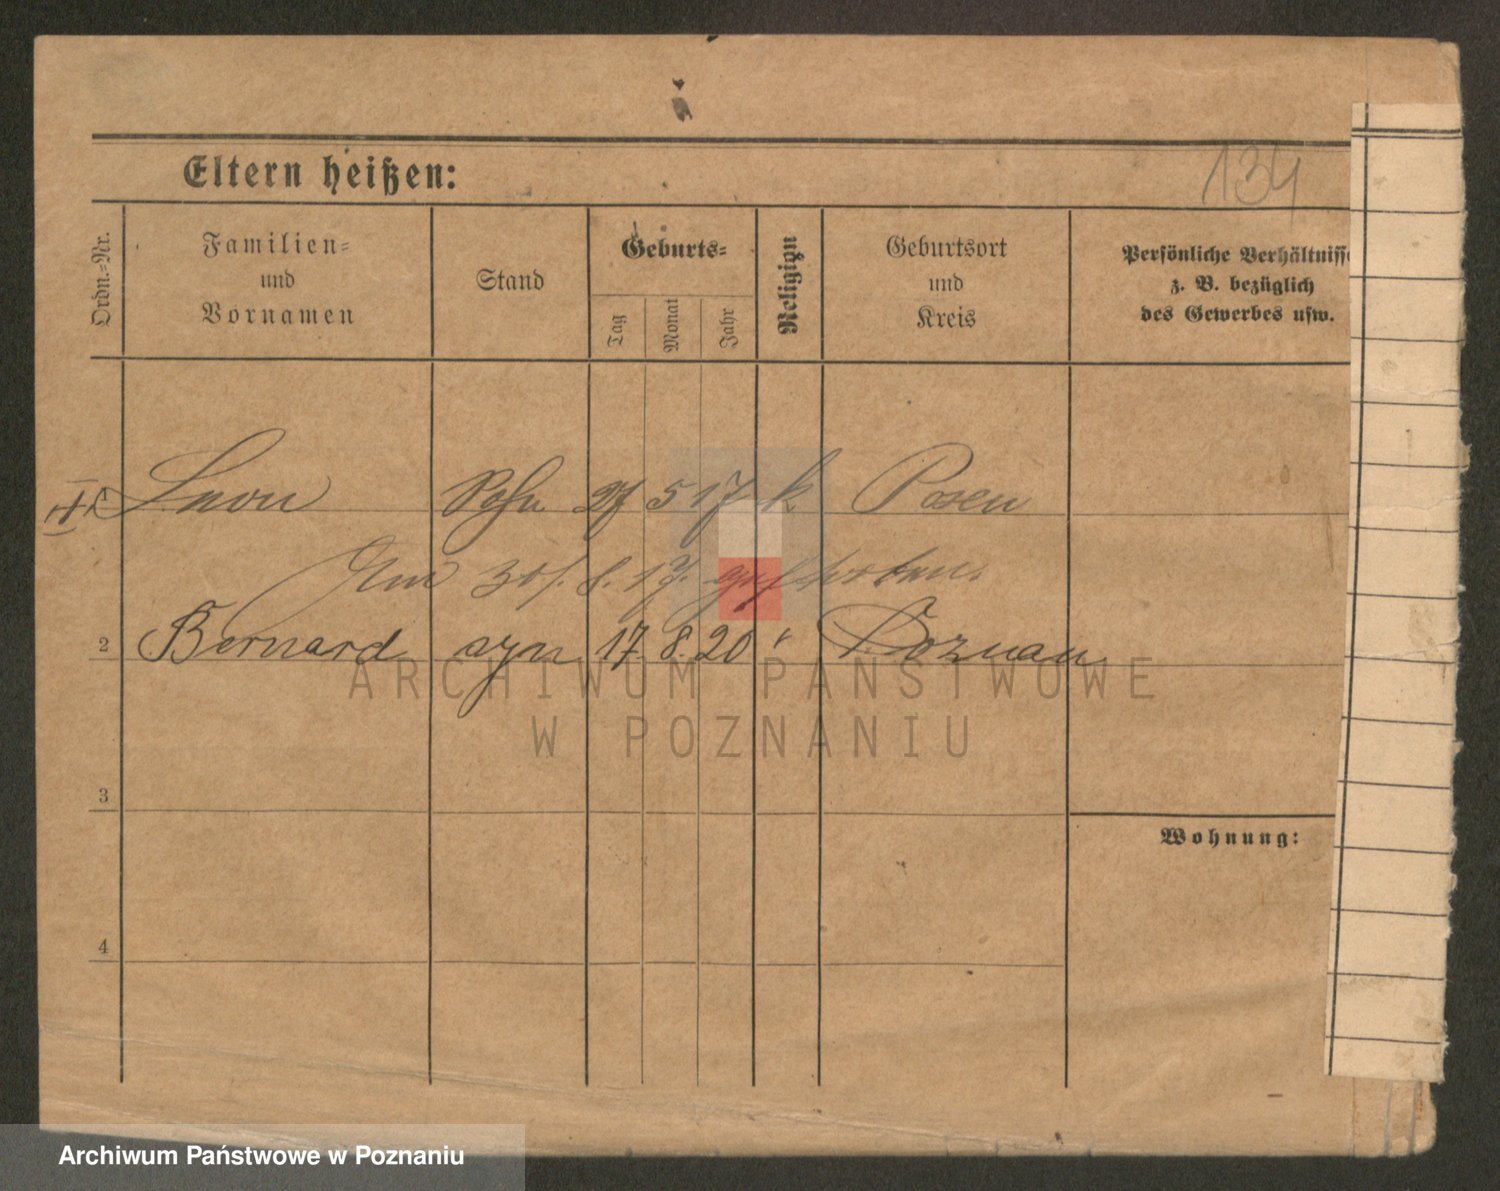 134
Eltern heißen:
Ordn.=Nr.
Familien=
und
Vornamen
Stand
Geburts=
Tag
Monat
Jahr
Religion
Geburtsort
und
Kreis
Persönliche Verhältnisse
z. B. bezüglich
des Gewerbes usw.
Leon Sohn 27 5 17 k Posen
Am 30/. 8. 17. gestorben.
2 Bernard syn 17. 8. 20 " Poznan
3
Wohnung:
4
ARCHIWUM PAŃSTWOWE
W POZNANIU
Archiwum Państwowe w Poznaniu